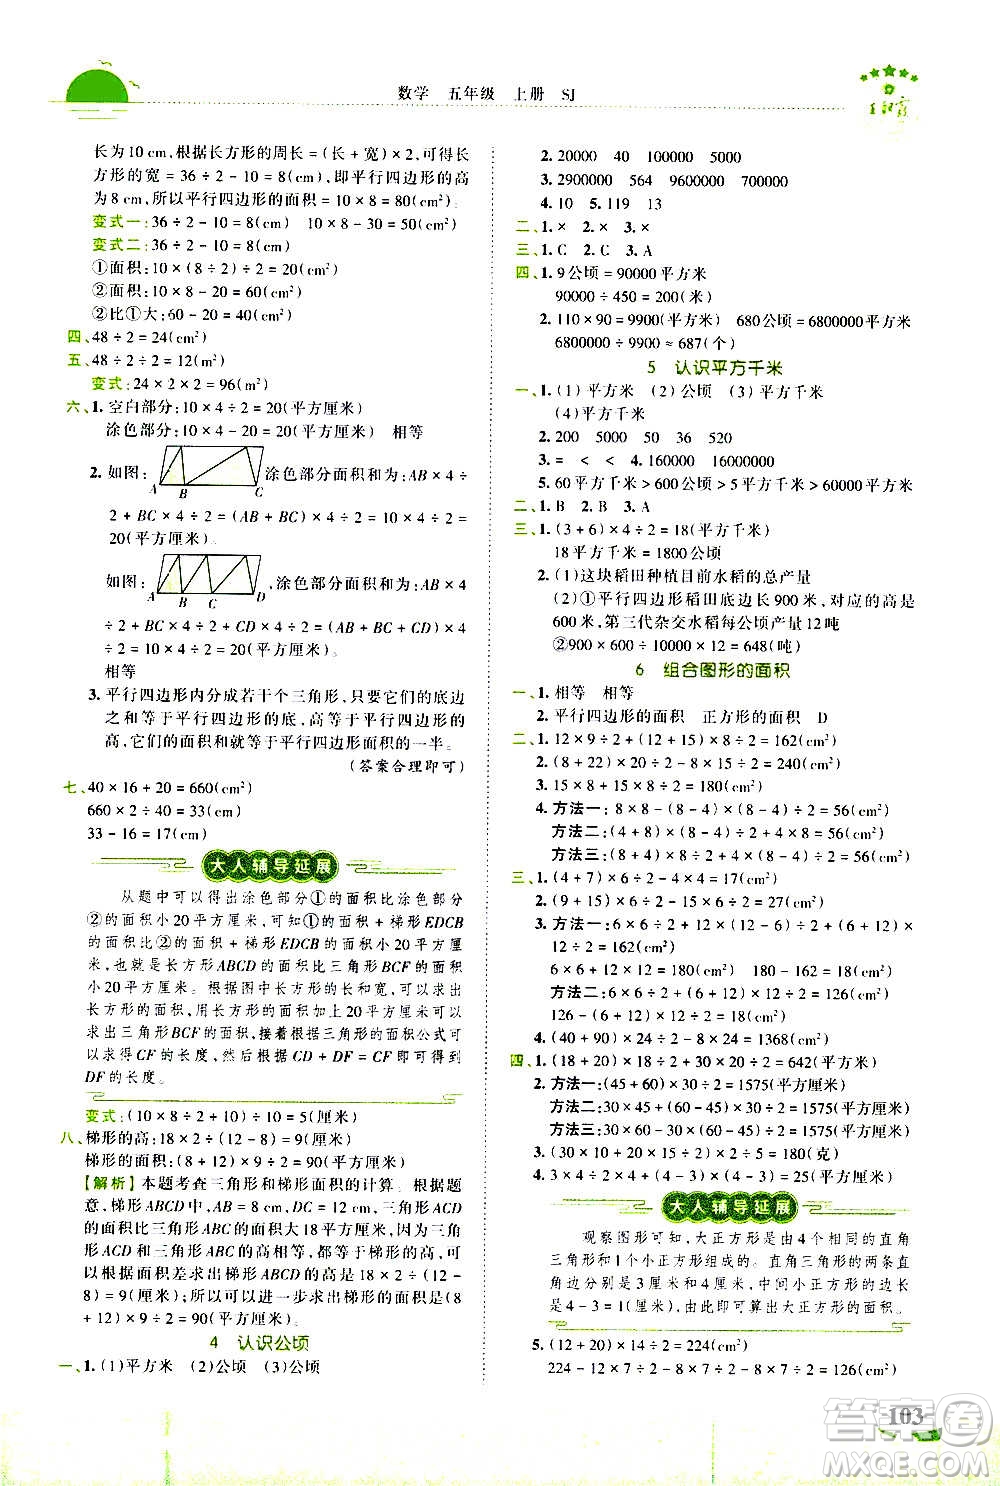 数学 五年级 上册 SJ
长为 10 cm,根据长方形的周长 = (长 + 宽) × 2,可得长
方形的宽 = 36 ÷ 2 - 10 = 8(cm),即平行四边形的高
为 8 cm,所以平行四边形的面积 = 10 × 8 = 80(cm²)。
变式一:36 ÷ 2 - 10 = 8(cm) 10 × 8 - 30 = 50(cm²)
变式二:36 ÷ 2 - 10 = 8(cm)
①面积:10 × (8 ÷ 2) ÷ 2 = 20(cm²)
②面积:10 × (8 - 2) = 60(cm²)
②比①大:60 - 20 = 40(cm²)
四、48 ÷ 2 = 24(cm²)
五、48 ÷ 2 ÷ 2 = 12(m²)
变式:24 × 2 × 2 = 96(m²)
六、1. 空白部分:10 × 4 ÷ 2 = 20(平方厘米)
涂色部分:10 × 4 - 20 = 20(平方厘米) 相等
2. 如图: A B C 涂色部分面积和为:AB × 4 ÷
2 + BC × 4 ÷ 2 = (AB + BC) × 4 ÷ 2 = 10 × 4 ÷ 2 =
20(平方厘米)。
如图: A B C D ,涂色部分面积和为:AB × 4
÷ 2 + BC × 4 ÷ 2 + CD × 4 ÷ 2 = (AB + BC + CD) ×
4 ÷ 2 = 10 × 4 ÷ 2 = 20(平方厘米)。
相等
3. 平行四边形内分成若干个三角形,只要它们的底边
之和等于平行四边形的底,高等于平行四边形的
高,它们的面积和就等于平行四边形面积的一半。
(答案合理即可)
七、40 × 16 + 20 = 660(cm²)
660 × 2 ÷ 40 = 33(cm)
33 - 16 = 17(cm)
大人辅导延展
从题中可以得出涂色部分①的面积比涂色部分
②的面积小 20 平方厘米,可知①的面积 + 梯形 EDCB
的面积比②的面积 + 梯形 EDCB 的面积小 20 平方厘
米,也就是长方形 ABCD 的面积比三角形 BCF 的面积
小 20 平方厘米。根据图中长方形的长和宽,可以求出
长方形的面积,用长方形的面积加上 20 平方厘米可以
求出三角形 BCF 的面积,接着根据三角形的面积公式可
以求得 CF 的长度,然后根据 CD + DF = CF 即可得到
DF 的长度。
变式:(10 × 8 ÷ 2 + 10) ÷ 10 = 5(厘米)
八、梯形的高:18 × 2 ÷ (12 - 8) = 9(厘米)
梯形的面积:(8 + 12) × 9 ÷ 2 = 90(平方厘米)
【解析】本题考查三角形和梯形面积的计算。根据题
意,梯形 ABCD 中,AB = 8 cm,DC = 12 cm,三角形 ACD
的面积比三角形 ABC 的面积大 18 平方厘米,而三角
形 ACD 和三角形 ABC 的高相等,等于梯形的高,可以
根据面积差求出梯形 ABCD 的高是 18 × 2 ÷ (12 -
8) = 9(厘米),因此可以进一步求出梯形的面积是(8
+ 12) × 9 ÷ 2 = 90(平方厘米)。
4 认识公顷
一、1. (1)平方米 (2)公顷 (3)公顷
2. 20000 40 100000 5000
3. 2900000 564 9600000 7000
4. 10 5. 119 13
二、1. × 2. × 3. ×
三、1. C 2. C 3. A
四、1. 9公顷 = 90000平方米
90000 ÷ 450 = 200(米)
2. 110 × 90 = 9900(平方米) 680公顷 = 6800000平方米
6800000 ÷ 9900 ≈ 687(个)
5 认识平方千米
一、1. (1)平方米 (2)公顷 (3)平方千米
(4)平方千米
2. 200 5000 50 36 520
3. = < < 4. 160000 16000000
5. 60平方千米 > 600公顷 > 5平方千米 > 60000平方米
二、1. B 2. B 3. A
三、1. (3 + 6) × 4 ÷ 2 = 18(平方千米)
18平方千米 = 1800公顷
2. (1)这块稻田种植目前水稻的总产量
(2)①平行四边形稻田底边长 900 米,对应的高是
600 米,第三代杂交水稻每公顷产量 12 吨
②900 × 600 ÷ 10000 × 12 = 648(吨)
6 组合图形的面积
一、1. 相等 相等
2. 平行四边形的面积 正方形的面积 D
二、1. 12 × 9 ÷ 2 + (12 + 15) × 8 ÷ 2 = 162(cm²)
2. (8 + 22) × 20 ÷ 2 - 20 × 8 ÷ 2 = 220(cm²)
3. 15 × 8 + 15 × 8 ÷ 2 = 180(cm²)
4. 方法一: 8 × 8 - (8 - 4) × (8 - 4) ÷ 2 = 56(cm²)
方法二: (4 + 8) × (8 - 4) ÷ 2 + 8 × 4 = 56(cm²)
方法三: (4 + 8) × 8 ÷ 2 + (8 - 4) × 4 ÷ 2 = 56(cm²)
三、1. (4 + 7) × 6 ÷ 2 - 4 × 6 ÷ 2 = 21(cm²)
2. (9 + 15) × 12 ÷ 2 + 9 × 6 ÷ 2 = 171(cm²)
3. 6 × 6 ÷ 2 + 12 × (12 - 6) ÷ 2 + (12 + 6) ×
12 ÷ 2 = 162(cm²)
6 × 6 + 12 × 12 = 180(cm²) 180 - 162 = 18(cm²)
126 - (6 + 12) × 12 ÷ 2 = 18(cm²)
4. (40 + 90) × 24 ÷ 2 - 24 × 16 ÷ 2 = 1368(cm²)
四、1. (18 + 20) × 18 ÷ 2 + 30 × 20 ÷ 2 = 642(平方米)
2. 方法一: (45 + 60) × 30 ÷ 2 = 1575(平方米)
方法二: 30 × 45 + (60 - 45) × 30 ÷ 2 = 1575(平方米)
方法三: 30 × 60 ÷ 2 + 30 × 45 ÷ 2 = 1575(平方米)
3. (30 × 10 + 20 × 15 ÷ 2) × 2 ÷ 5 = 180(克)
4. 3 × 4 ÷ 2 × 4 + (4 - 3) × (4 - 3) = 25(平方厘米)
大人辅导延展
观察图形可知,大正方形是由 4 个相同的直角
三角形和1个小正方形组成的。直角三角形的两条直
角边分别是 3 厘米和 4 厘米,中间小正方形的边长
是 4 - 3 = 1(厘米),由此即可算出大正方形的面积。
5. (12 + 20) × 14 ÷ 2 = 224(cm²)
224 - 12 × 7 ÷ 2 - 8 × 7 ÷ 2 - 8 × 7 ÷ 2 = 126(cm²)
103
答案圈
MXQE.COM